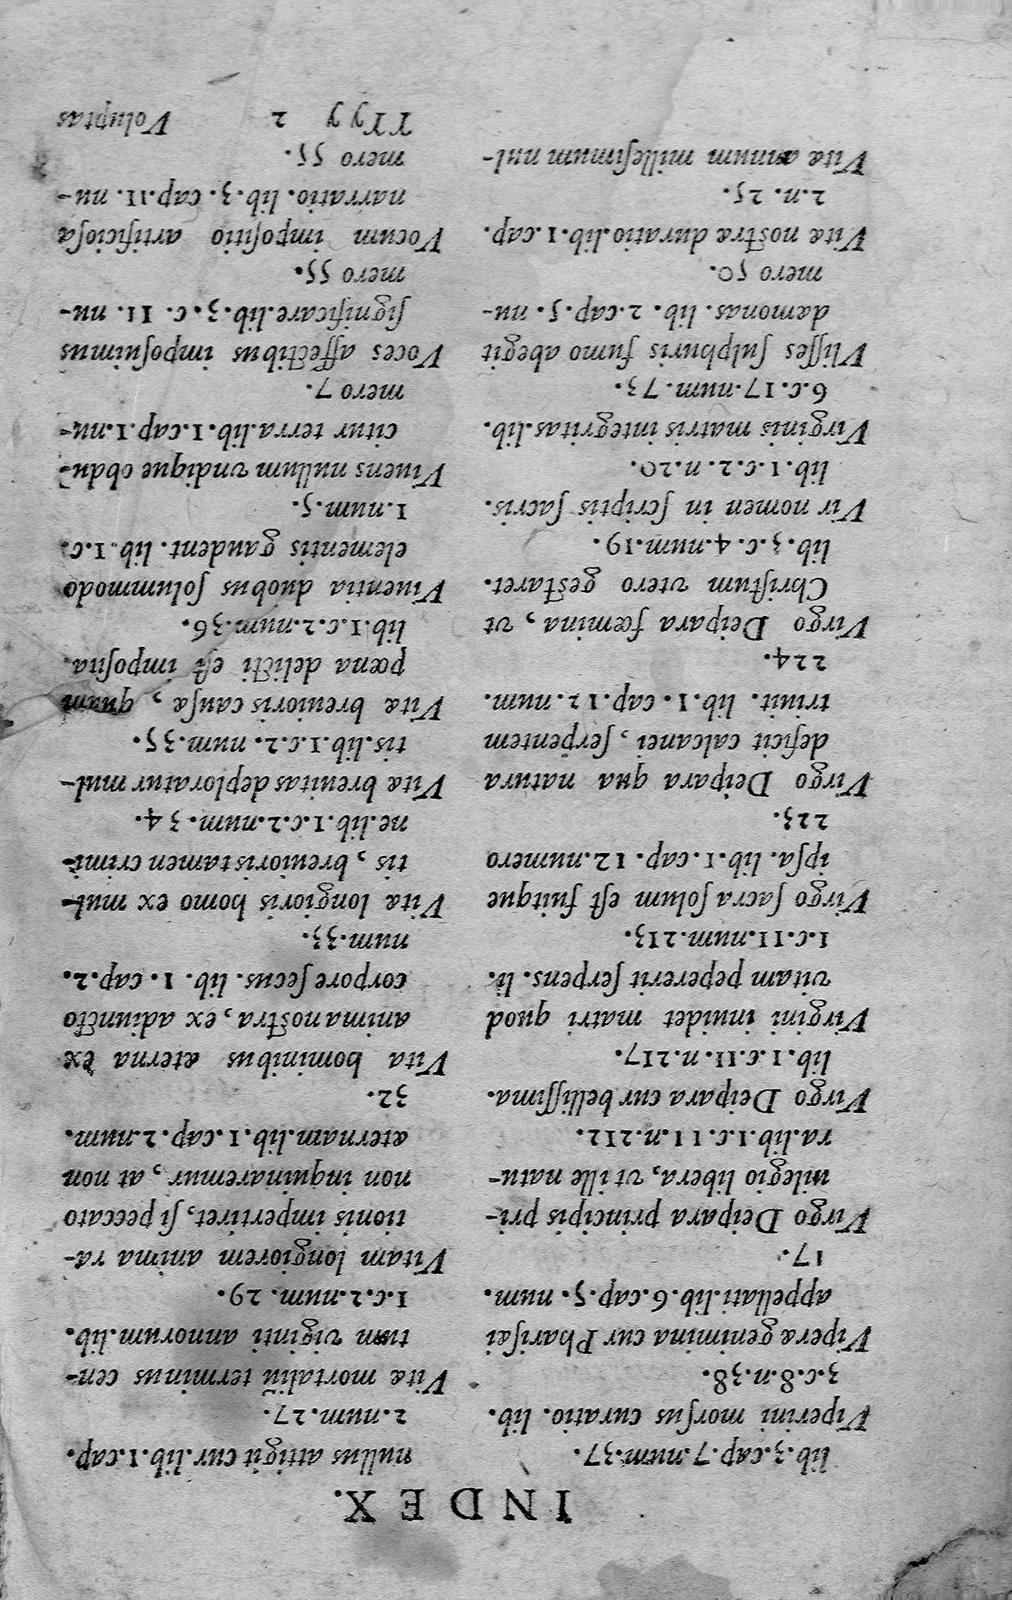 INDEX.
lib.3.cap.7.num.37.
Viperini morsus curatio. lib.
3.c.8.n.38.
Vipera genimina cur Pharisæi
appellati.lib.6.cap.5. num.
17.
Virgo Deipara principis pri-
uilegio libera, vt ille natu-
ra.lib.1.c.11.n.212.
Virgo Deipara cur bellissima.
lib.1.c.11.n.217.
Virgini inuidet matri quod
vitam pepererit serpens. li.
1.c.11.num.213.
Virgo sacra solum est fuitque
ipsa. lib.1.cap. 12.numero
223.
Virgo Deipara qua natura
deficit calcanei, serpentem
triuit. lib.1.cap.12.num.
224.
Virgo Deipara fœmina, vt
Christum vtero gestaret.
lib.3.c.4.num.19.
Vir nomen in scriptis sacris.
lib.1.c.2.n.20.
Virginis matris integritas.lib.
6.c.17.num.73.
Vlisses sulphuris fumo abegit
dæmonas. lib. 2.cap.5.nu-
mero 50.
Vitæ nostræ duratio.lib.1.cap.
2.n. 25.
Vitæ annum millesimum nul-
nullus attigit cur.lib.1.cap.
2.num.27.
Vitæ mortaliũ terminus cen-
tum viginti annorum.lib.
1.c.2.num. 29.
Vitam longiorem anima ra-
tionis impertiret, si peccato
non inquinaremur, at non
æternam.lib.1.cap.2.num.
32.
Vita hominibus æterna ex
anima nostra, ex adiuncto
corpore secus. lib. 1.cap.2.
num.33.
Vita longioris homo ex mul-
tis, breuioris tamen crimi-
ne.lib.1.c.2.num.34.
Vitæ breuitas deploratur mul-
tis.lib.1.c.2. num.35.
Vitæ breuioris causa, quam
pœna delicti est imposita.
lib.1.c.2.num.36.
Viuentia duobus solummodo
elementis gaudent. lib.1.c.
1.num.5.
Viuens nullum vndique obdu-
citur terra.lib.1.cap.1.nu-
mero 7.
Voces affectibus imposuimus
significare.lib.3.c. 11. nu-
mero 55.
Vocum impositio artificiosa
narratio. lib.3.cap.11. nu-
mero 55.
YYyy 2 Voluptas